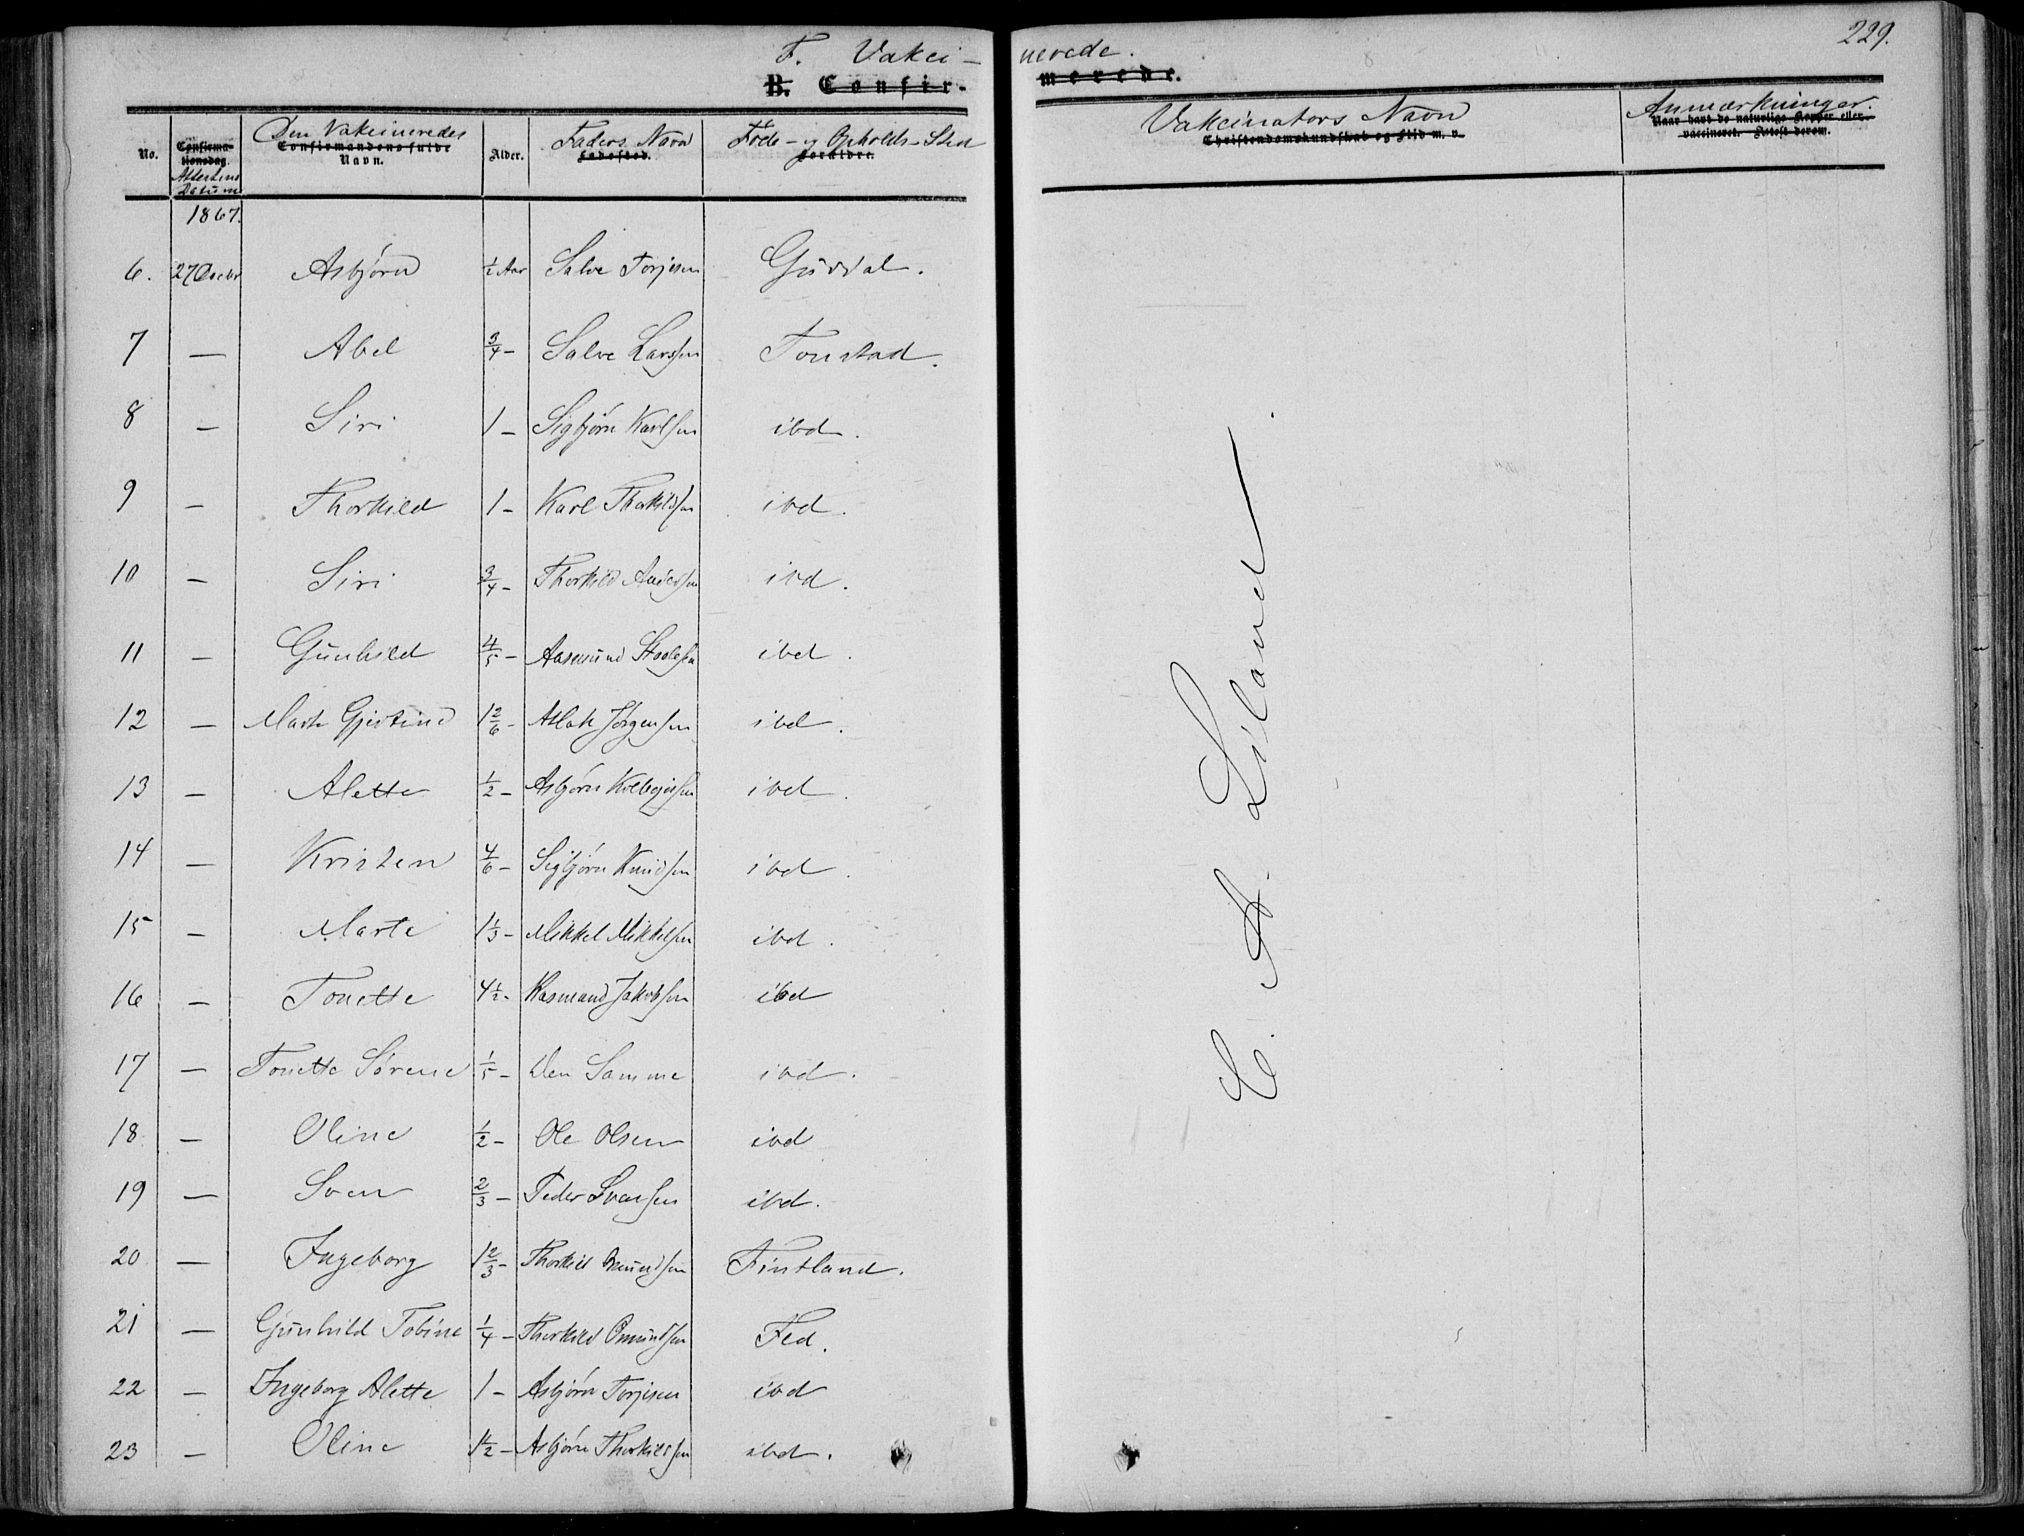 F. Vakci- nerede. 229.
B. Confir- merede.
No. Confirmationsdag. Attestens Datum Den Vakcineredes Confirmandens fulde Navn. Alder. Faders Navn Fødested. Føde- og Opholds-Sted Foreldre. Vakcinators Navn Christendomskundskab og Flid m. v. Anmærkninger. Naar havt de naturlige Kopper eller vaccineret. Attest derom.
1867.
6. 27 Decbr Asbjørn ½ Aar Salve Torjesen Guddal.
7 — Abel 3/4 - Salve Larssen Tonstad.
8 — Siri 1 - Sigbjørn Karlsen ibd.
9 — Thorkild 1 - Karl Thorkildsen ibd.
10 — Siri 3/4 - Thorkild Anderssen ibd.
11 — Gunhild 4/5 - Aasmund ibd.
12 — Marte Gjertine 1 2/6 - Atlak Jørgensen ibd.
13 — Alette 1/2 - Asbjørn ibd.
14 — Kristen 4/6 - Sigbjørn Knudsen ibd.
15 — Marte 1 1/3 - Mikkel Mikkelsen ibd.
16 — Tonette 4 1/2 - Rasmund Jakobsen ibd
17 — Tonette Sørene 1/5 - Den Samme ibd.
18 — Oline 1/2 - Ole Olsen ibd
19 — Sven 2/3 - Peder Svensen ibd.
20 — Ingeborg 1 2/3 - Thorkild Omundsen Fintland.
21 — Gunhild Tobine 1/4 - Thorkild Omundsen Fed.
22 — Ingeborg Alette 1 - Asbjørn Torjesen ibd
23 — Oline 1 1/2 - Asbjørn Thorkildsen ibd.
E. A. Liland